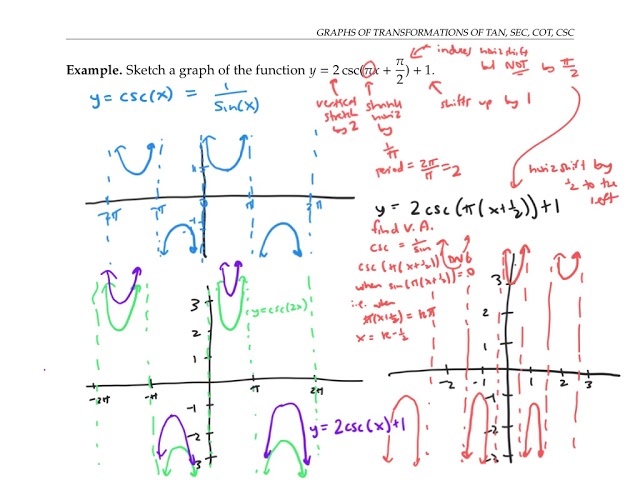 GRAPHS OF TRANSFORMATIONS OF TAN, SEC, COT, CSC
Example. Sketch a graph of the function y = 2 csc(πx + π/2) + 1.
induces horiz shift
but NOT by π/2
y = csc(x) = 1/sin(x)
vertical stretch by 2
shrink horiz by 1/π
shifts up by 1
period = 2π/π = 2
horiz shift by 1/2 to the left
y = 2 csc(π(x+½))+1
find V.A.
csc = 1/sin
csc(π(x+½)) DNE
when sin(π(x+½))=0
i.e. when
π(x+½) = kπ
x = k-½
-2π -π 0 π 2π
-1
3
2
1
y=csc(2x)
-2π -π π 2π
-1
-2
-3
y = 2csc(x)+1
3
2
1
-2 -1 1 2 3
-1
-2
-3